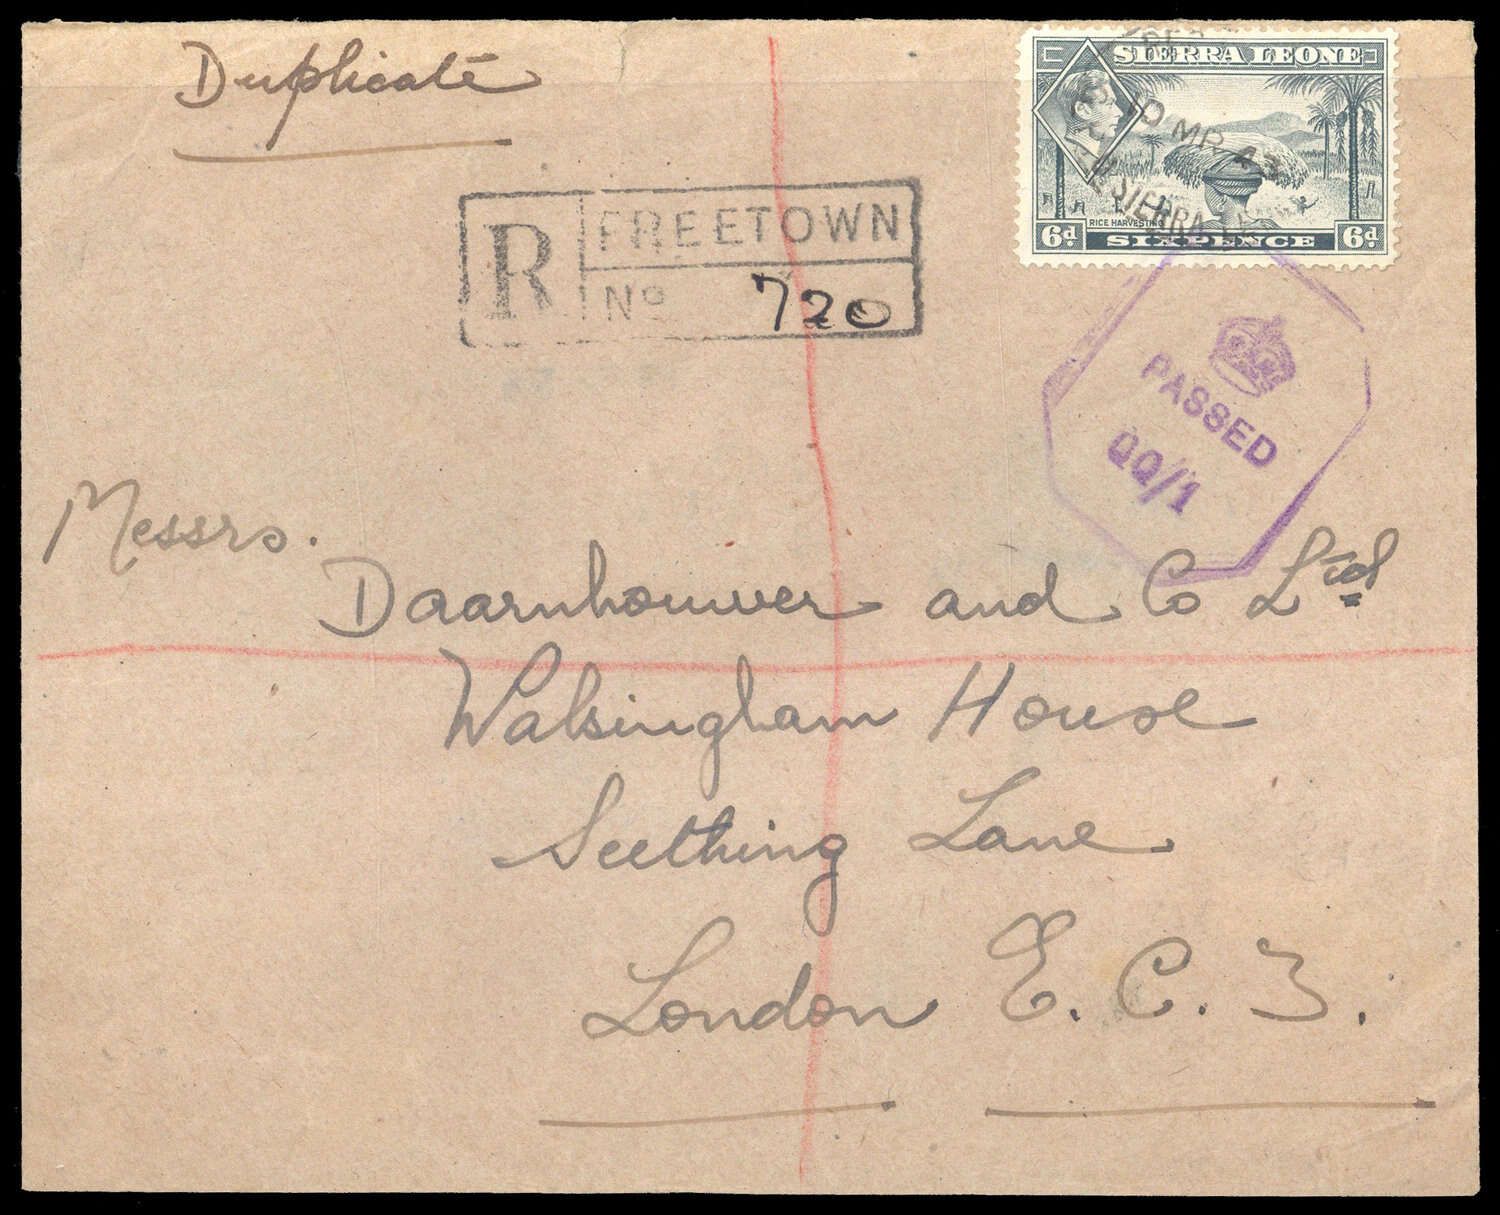 Duplicate
SIERRA LEONE
10 MR 43
SIERRA
RICE HARVESTING
6d. SIXPENCE 6d.
R FREETOWN
No 720
PASSED
QQ/1
Messrs.
Daarnhouwer and Co Ltd
Walsingham House
Seething Lane
London E.C. 3.